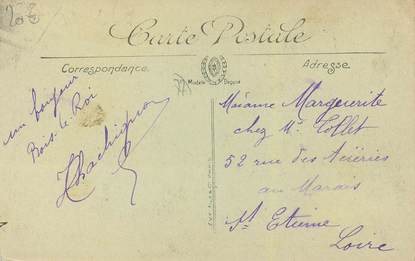 20€
Carte Postale
Correspondance
Adresse
Modèle Déposé
un bonjour
Bois-le-Roi
Madame Marguerite
chez Mr Tollet
52 rue des Aciéries
au Marais
St Etienne
Loire